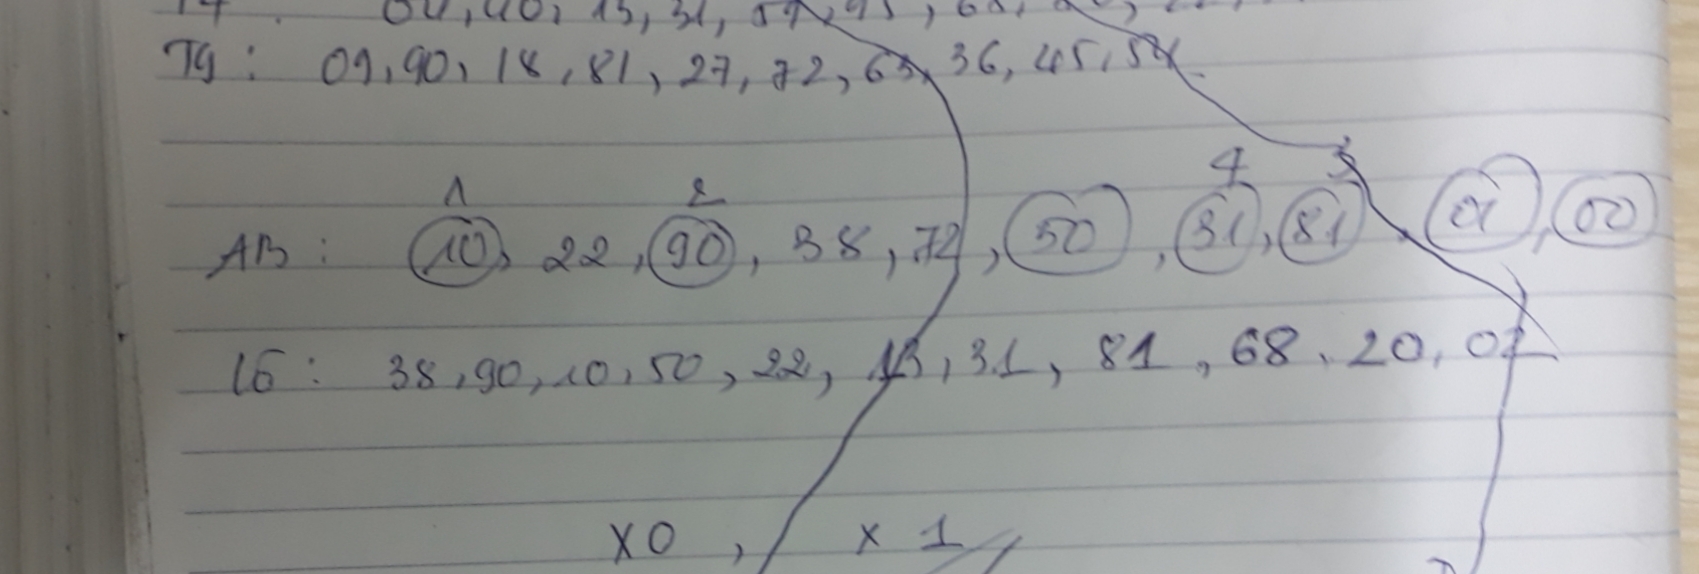 13, 31,
T9 : 09, 90, 18, 81, 27, 72, 63, 36, 45, 54
1 2 4 3
AB : 10, 22, 90, 38, 72, 50, 31, 81, 01, 00
16 : 38, 90, 10, 50, 22, 13, 31, 81, 68, 20, 02
x0 , x 1